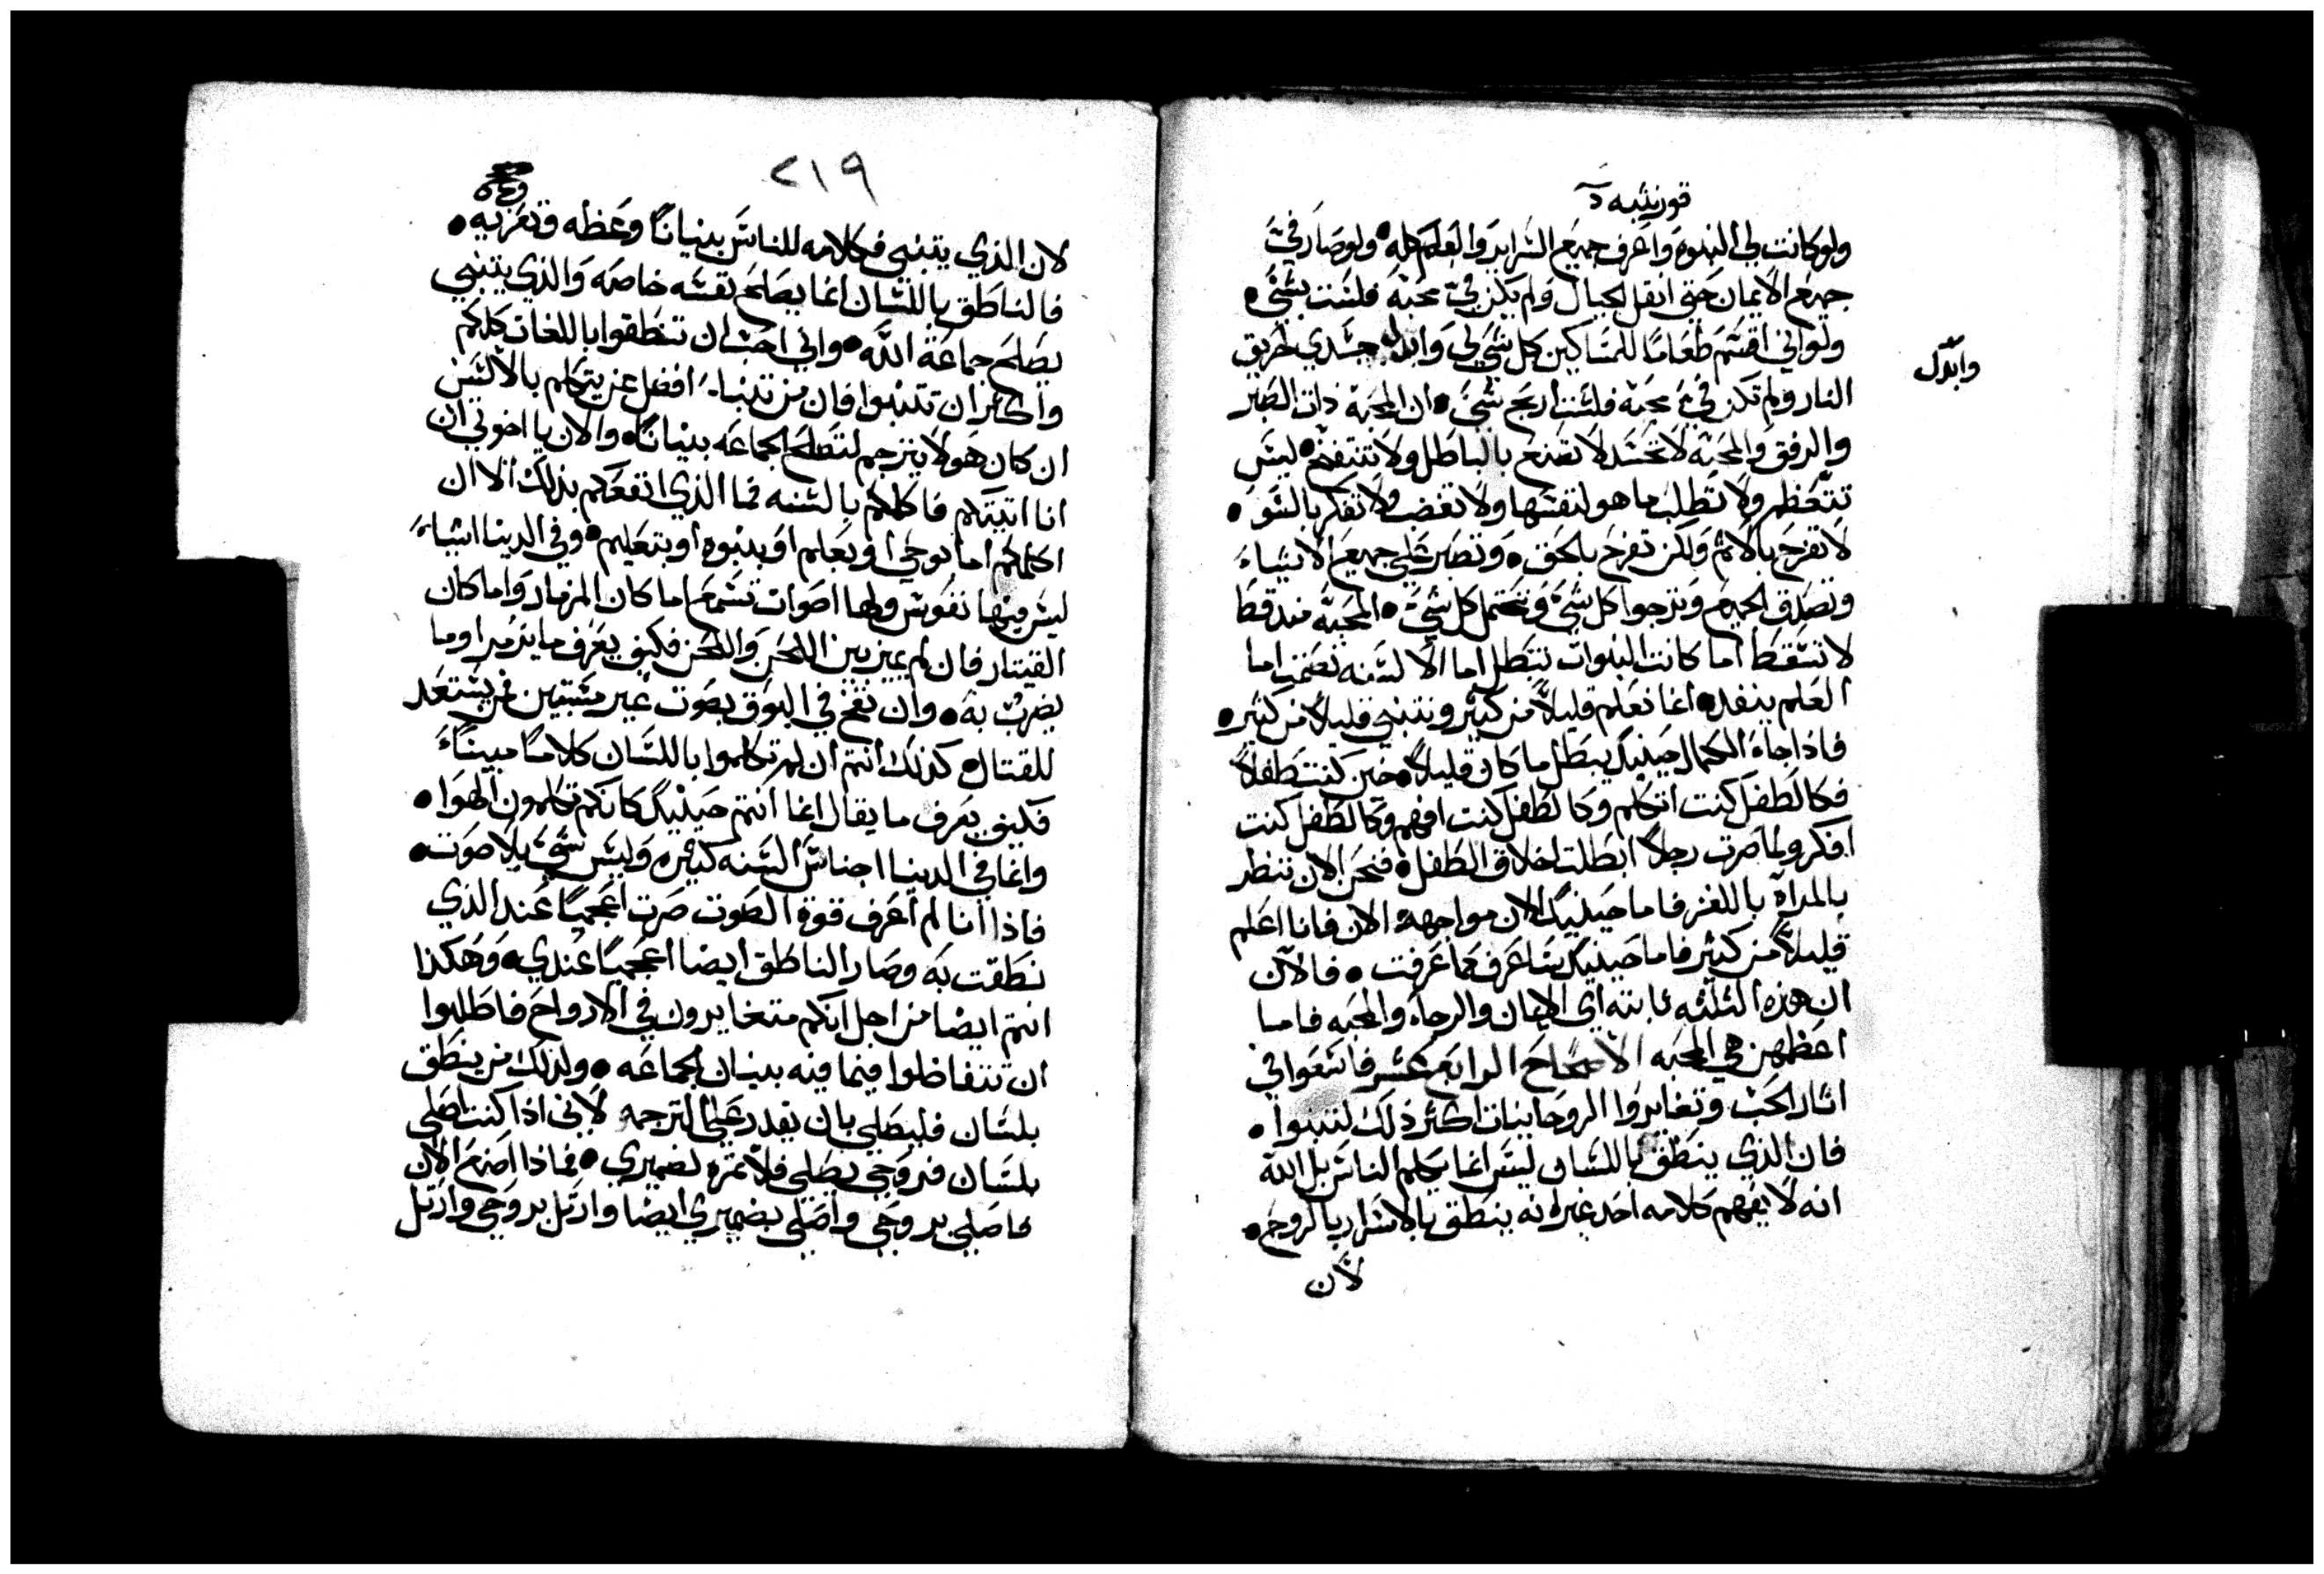 قورنثيه
ولو كانت لي النبوه واعرف جميع السراير والعلم كله • ولو صار في
جميع الايمان حتى انقل الجبال ولم يكن في محبه فلست بشي •
ولو اني اقسم طعامًا للمساكين كل شي لي وابدل جسدي لحريق
وابدل
النار ولم تكن في محبة فلست اربح شي • ان المحبة ذات الصبر
والرفق والمحبة لا تحسد لا تصنع بالباطل ولا تنتفخ • ليس
تتعظم ولا تطلب ما هو لنفسها ولا تغضب ولا تفكر بالسو •
لا تفرح بالاثم ولكن تفرح بالحق • وتصبر على جميع الاشياء
وتصدق الجميع وترجوا كل شي وتحتمل كل شي • المحبة منذ قط
لا تسقط اما كانت النبوات تتبطل اما الالسنه تصمت اما
العلم ينفد • انما نعلم قليلاً من كثير ونتنبي قليلاً من كثير •
فاذا جاء الكمال حينيذ يبطل ما كان قليلاً • حين كنت طفلاً
فكالطفل كنت اتكلم وكالطفل كنت افهم وكالطفل كنت
افكر ولما صرت رجلاً ابطلت اخلاق الطفل • فنحن الان ننظر
بالمراة باللغز فاما حينيذ الان مواجهة الان فانا اعلم
قليلاً من كثير فاما حينيذ ساعرف كما عرفت • فالآن
ان هذه الثلثه ثابته اي الايمان والرجاء والمحبه فاما
اعظمهن هي المحبه الاصحاح الرابع عشر فاسعوا في
اثار الحب وتغايروا الروحانيات اكثر ذلك لتتنبوا •
فان الذي ينطق باللسان ليس انما يكلم الناس بل الله
انه لا يفهم كلامه احد غير انه ينطق بالاسرار بالروح •
لان
٢١٩
لان الذي يتنبي فكلامه للناس بنيانًا وعظه وتعزيه •
فالناطق باللسان انما يصلح نفسه خاصه والذي يتنبي
يصلح جماعة الله • واني احب ان تنطقوا باللغات كلكم
واكثر ان تتنبوا فان من تنبا افضل عن يتكلم بالالسن
ان كان هو لا يترجم لتصلح الجماعه بنيانًا • والان يا اخوتي ان
انا اتيتكم فاكلمكم بالسنه فما الذي انفعكم بذلك الا ان
اكلمكم اما بوحي او بعلم او بنبوه او بتعليم • وفي الدنيا اشياء
ليس فيها نفوس ولها اصوات تسمع اما كان المزمار واما كان
القيتار فان لم يميز بين اللحن واللحن فكيف يعرف ما يزمر او ما
يضرب به • وان نفخ في البوق بصوت غير مستبين فمن يستعد
للقتال • كذلك انتم ان لم تكلموا باللسان كلامًا مبينًا
فكيف يعرف ما يقال انما انتم حينيذ كانكم تكلمون الهوا •
وانما في الدنيا اجناس السنه كثيره وليس شي بلا صوت •
فاذا انا لم اعرف قوة الصوت صرت اعجميًا عند الذي
نطقت به وصار الناطق ايضا اعجميًا عندي • وهكذا
انتم ايضا من اجل انكم متغايرون في الارواح فاطلبوا
ان تتفاضلوا فيما فيه بنيان الجماعه • ولذلك من ينطق
بلسان فليصلي بان يقدر على الترجمه لاني اذا كنت اصلي
بلسان فروحي تصلي فلا ثمره لضميري • فماذا اصنع الان
فاصلي بروحي واصلي بضميري ايضا وارتل بروحي وارتل